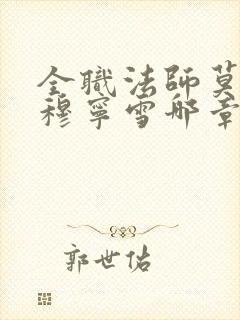 全職法師莫
穆寧雪哪章
郭世佑